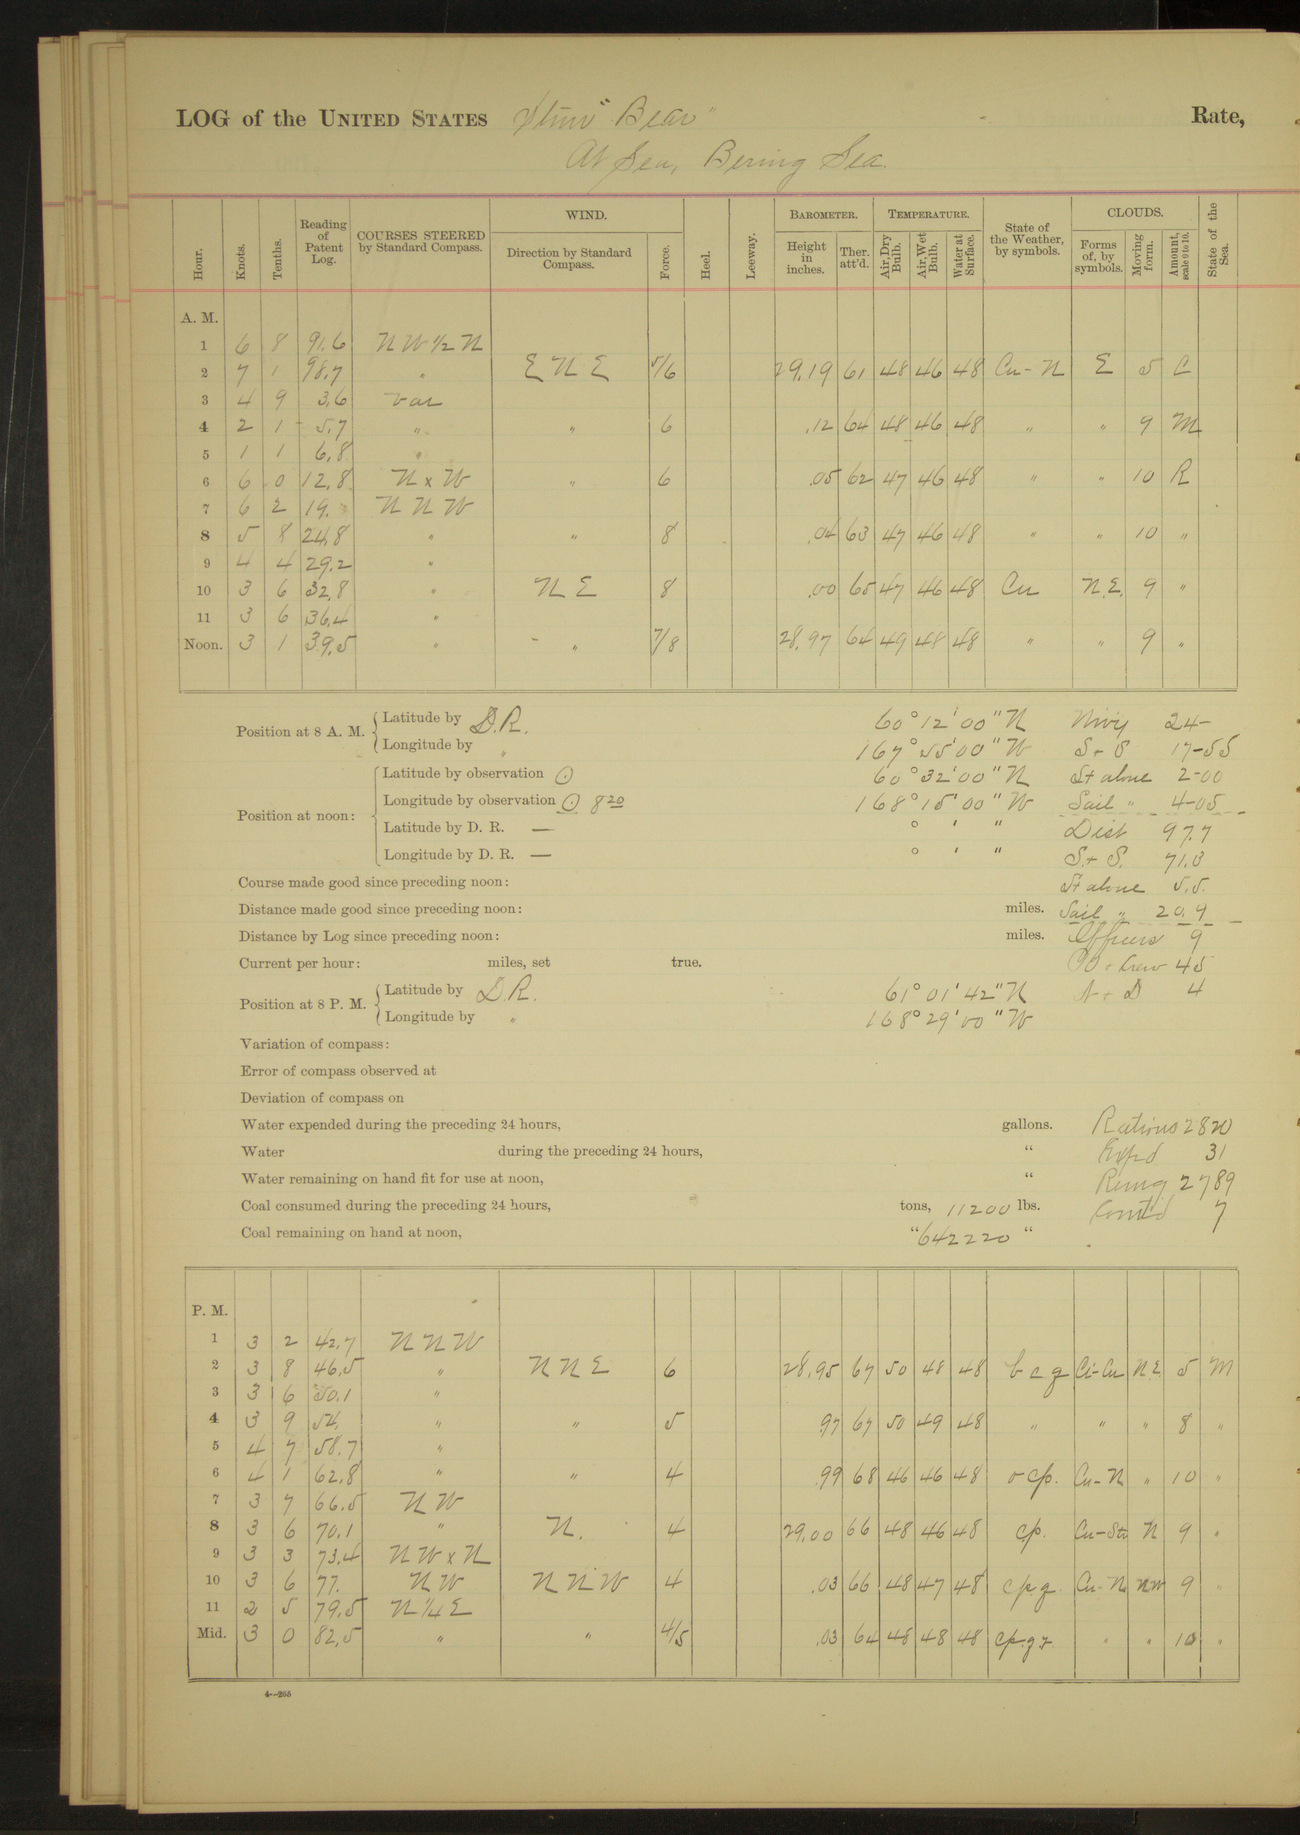 LOG of the UNITED STATES Stmr "Bear" Rate,
At Sea, Bering Sea.
Hour. Knots. Tenths. Reading of Patent Log. COURSES STEERED by Standard Compass. WIND. Direction by Standard Compass. Force. Heel. Leeway. BAROMETER. Height in inches. Ther. att'd. TEMPERATURE. Air, Dry Bulb. Air, Wet Bulb. Water at Surface. State of the Weather, by symbols. CLOUDS. Forms of, by symbols. Moving form. Amount, scale 0 to 10. State of the Sea.
A. M.
1 6 8 91.6 NW ½ N
2 7 1 98.7 " ENE 5/6 29.19 61 48 46 48 Cu-N E 5 C
3 4 9 3.6 Var
4 2 1 5.7 " " 6 .12 64 48 46 48 " " 9 M
5 1 1 6.8 "
6 6 0 12.8 N x W " 6 .05 62 47 46 48 " " 10 R
7 6 2 19. NNW
8 5 8 24.8 " " 8 .04 63 47 46 48 " " 10 "
9 4 4 29.2 "
10 3 6 32.8 " NE 8 .00 65 47 46 48 Cu N.E. 9 "
11 3 6 36.4 "
Noon. 3 1 39.5 " " 7/8 28.97 64 49 48 48 " " 9 "
Position at 8 A. M. Latitude by D.R. 60° 12' 00" N 24-
Longitude by " 167° 55' 00" W S + S 17-55
Position at noon: Latitude by observation ⊙ 60° 32' 00" N St alone 2-00
Longitude by observation ⊙ 8 20 168° 15' 00" W Sail " 4-05
Latitude by D. R. — ° ' " Dist 97.7
Longitude by D. R. — ° ' " S. + S. 71.3
Course made good since preceding noon: St alone 5.5.
Distance made good since preceding noon: miles. Sail " 20.9
Distance by Log since preceding noon: miles. Officers 9
Current per hour: miles, set true. Crew 45
Position at 8 P. M. Latitude by D.R. 61° 01' 42" N 4
Longitude by " 168° 29' 00" W
Variation of compass:
Error of compass observed at
Deviation of compass on
Water expended during the preceding 24 hours, gallons. Rations 2820
Water during the preceding 24 hours, " Exp'd 31
Water remaining on hand fit for use at noon, " Remg 2789
Coal consumed during the preceding 24 hours, tons, 11200 lbs. Com'td 7
Coal remaining on hand at noon, " 642220 "
P. M.
1 3 2 42.7 NNW
2 3 8 46.5 " NNE 6 28.95 67 50 48 48 b c q Ci-Cu N.E. 5 M
3 3 6 50.1 "
4 3 9 54. " " 5 .97 67 50 49 48 " " " 8 "
5 4 7 58.7 "
6 4 1 62.8 " " 4 .99 68 46 46 48 o c p. Cu-N " 10 "
7 3 7 66.5 NW
8 3 6 70.1 " N. 4 29.00 66 48 46 48 cp. Cu-Str N 9 "
9 3 3 73.4 NW x N
10 3 6 77. NW NNW 4 .03 66 48 47 48 cp.q. Cu-N NW 9 "
11 2 5 79.5 N ¼ E
Mid. 3 0 82.5 " " 4/5 .03 64 48 48 48 " " 10 "
4—255